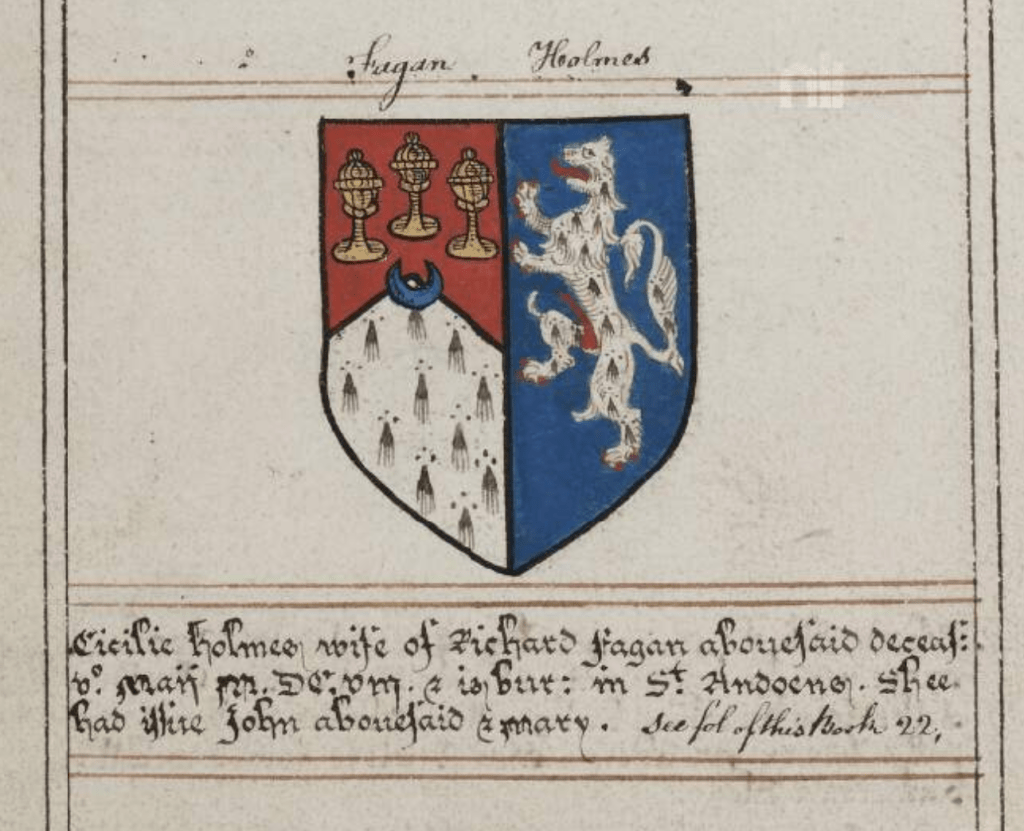 Fagan Holmes
nli
Cicilie Holmes wife of Richard Fagan abouesaid deceas:
vº. Maij M. DCº. viij. & is bur: in St. Andoens. Shee
had issue John abouesaid & mary. see fol of this Book 22,